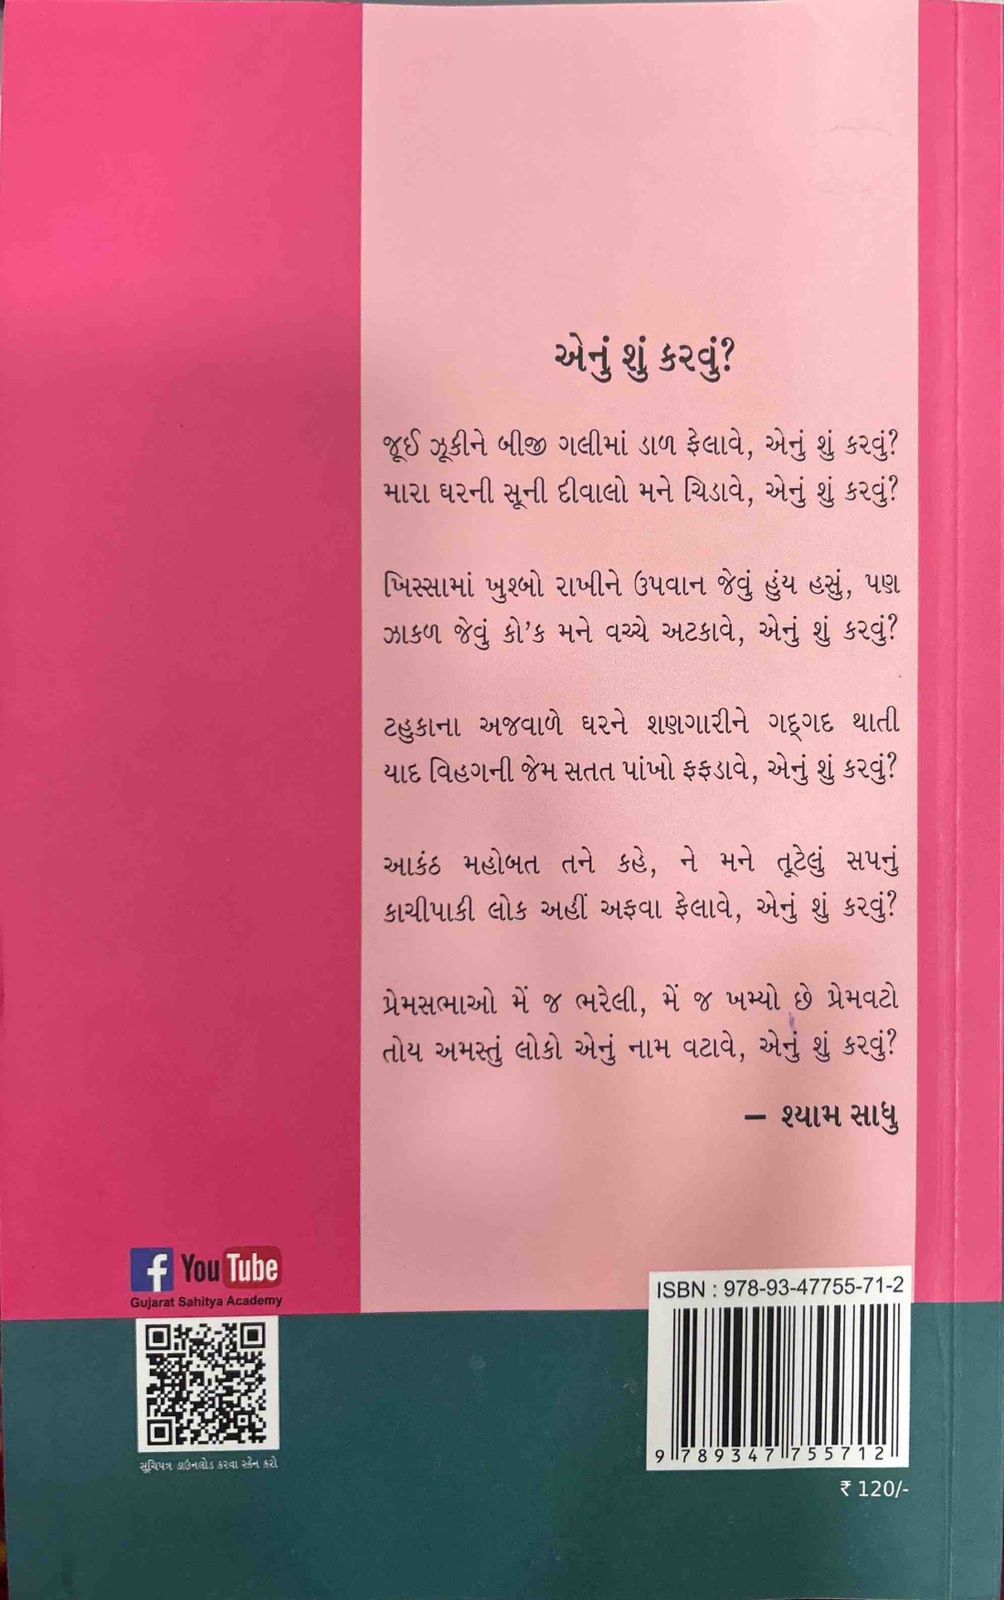 એનું શું કરવું?
જૂઈ ઝૂકીને બીજી ગલીમાં ડાળ ફેલાવે, એનું શું કરવું?
મારા ઘરની સૂની દીવાલો મને ચિડાવે, એનું શું કરવું?
ખિસ્સામાં ખુશ્બો રાખીને ઉપવાન જેવું હુંય હસું, પણ
ઝાકળ જેવું કો'ક મને વચ્ચે અટકાવે, એનું શું કરવું?
ટહુકાના અજવાળે ઘરને શણગારીને ગદ્ગદ થાતી
યાદ વિહગની જેમ સતત પાંખો ફફડાવે, એનું શું કરવું?
આકંઠ મહોબત તને કહે, ને મને તૂટેલું સપનું
કાચીપાકી લોક અહીં અફવા ફેલાવે, એનું શું કરવું?
પ્રેમસભાઓ મેં જ ભરેલી, મેં જ ખમ્યો છે પ્રેમવટો
તોય અમસ્તું લોકો એનું નામ વટાવે, એનું શું કરવું?
– શ્યામ સાધુ
f YouTube
Gujarat Sahitya Academy
સૂચિપત્ર ડાઉનલોડ કરવા સ્કેન કરો
ISBN : 978-93-47755-71-2
9 789347 755712
₹ 120/-